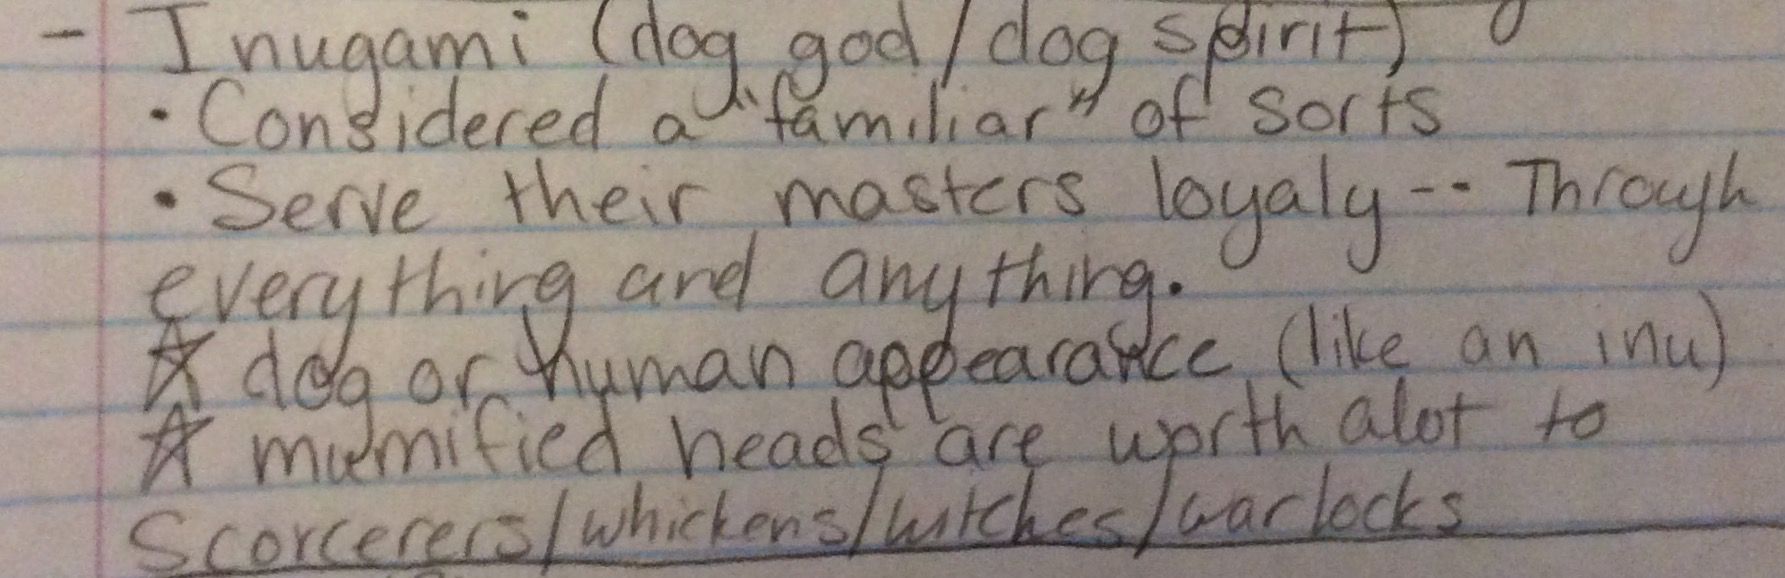 - Inugami (dog god/dog spirit)
• Considered a "familiar" of sorts
• Serve their masters loyaly -- Through
everything and anything.
☆ dog or human appearance (like an inu)
☆ mummified heads are worth alot to
Scorcerers/whickens/witches/warlocks